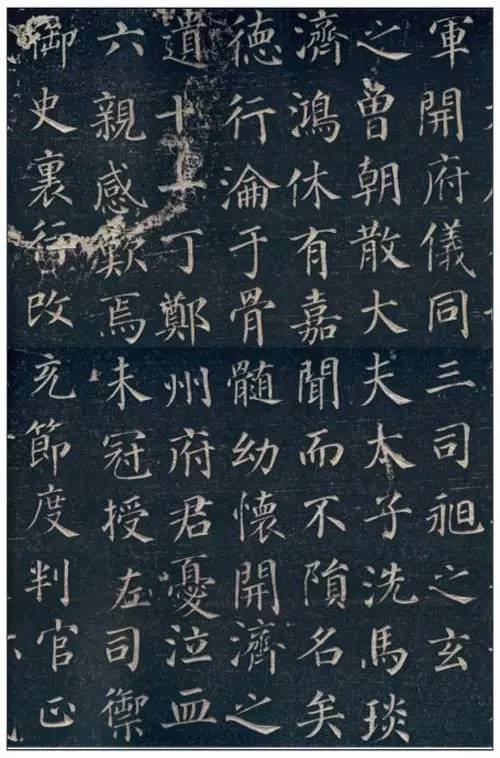 軍開府儀同三司之玄
之曾朝散大夫太子洗馬琰
濟鴻休有嘉聞而不隕名矣
德行淪于骨髓幼懷開濟之
遺十一丁鄭州府君憂泣血
六親感歎焉未冠授左司禦
御史裏行改充節度判官正